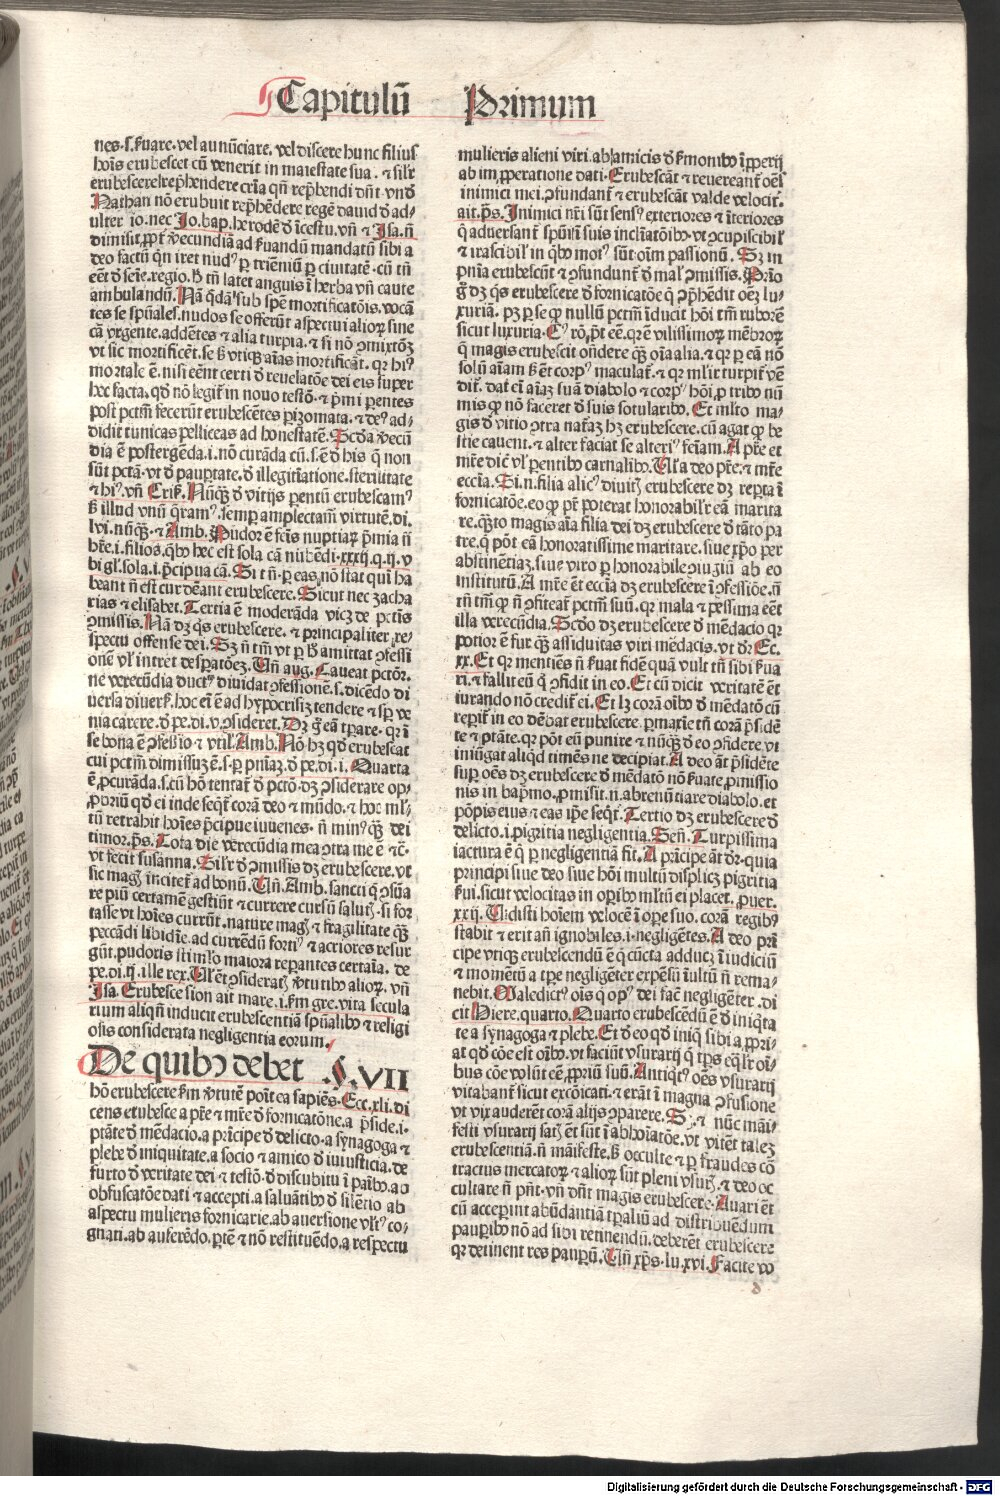 Capitulū Primum
nes.s.ẜuare.vel annūciare. vel discere hunc filius
hoīs erubescet cū venerit in maiestate sua. ⁊ silr̄
erubescere rep̄hendere crīa qn̄ rep̄hendi dn̄t. vnd̄
Nathan nō erubuit rep̄hēdere regē dauid d̄ ad-
ulterio. nec Io. bap. herodē d̄ īcestu. vn̄ ⁊ Isa. n̄
dimisit ꝓpt̄ v̄ecundiā ad ẜuandū mandatū sibi a
deo factū qn̄ iret nudꝰ ꝑ triēniū ꝑ ciuitatē. cū tn̄
eēt d̄ sēie. regio. h̄ tn̄ latet anguis ī herba vn̄ caute
ambulandū. Nā qdā sub spē mortificatōis. vocā
tes se spūales. nudos se offerūt aspectui alioꝝ sine
cā vrgente. addētes ⁊ alia turpia. ⁊ si nō ꝯmixtōꝫ
vt sic mortificēt. se ẜ vtiqꝫ aīas mortificāt. qꝛ hiꝰ
mortale ē. nisi eēnt certi d̄ reuelatōe dei eis super
hec facta. qd̄ nō legit̄ in nouo testō. ⁊ p̄mi parentes
post pctm̄ fecerūt erubescētes ꝑizomata. ⁊ deꝰ ad-
didit tunicas pelliceas ad honestatē. Scd̄a v̄ecū
dia ē postergēda. i. nō curāda cū. s. ē d̄ his q̄ non
sūt pctā. vt d̄ pauꝑtate. d̄ illegitīatione. sterilitate
⁊ hiꝰ. vn̄ Crisꝰ. Nūqꝫ d̄ vitijs parentū erubescamꝰ
ẜ illud vnū q̄ramꝰ. semꝑ amplectam̄ virtutē. di.
lvi. nūqꝫ. ⁊ Amb. Pudor ē fēis nuptiaꝝ p̄mia n̄
hr̄e. i. filios. qƀo hec est sola cā nubēdi. xxxij. q. ij. v
bi gl̄. sola. i. p̄cipua cā. Si tn̄. ꝑ eas nō stat quī ha
beant n̄ est cur dēant erubescere. Sicut nec zacha
rias ⁊ elisabet. Tertia ē moderāda vicꝫ de pctīs
ꝯmissis. Nā dꝫ qs erubescere. ⁊ principaliter re-
spectu offense dei. Sꝫ n̄ tm̄ vt ꝑ h̄ amittat ꝯfessi
onē vl̓ intret desꝑatōeꝫ. Vn̄ aug. Caueat pctōr.
ne verecūdia ductꝰ diuidat ꝯfessionē. s. dicēdo di
uersa diuerẜ. hoc eī ē ad hypocrisiꝫ tendere ⁊ sp̄ ve
nia carere. d̄ pe. di. v. ꝯsideret. Dꝫ g̊ eā tꝑare. qꝛ ī
se bona ē ꝯfessio ⁊ vtil̓. Amb. Nō hꝫ qd̄ erubescat
cui pctm̄ dimissuꝫ ē. s. ꝑ pniaꝫ. d̄ pe. di. i. Quarta
ē ꝓcurāda. s. cū hō tentat̄ d̄ pctō. dꝫ ꝯsiderare op-
ꝓbriū qd̄ ei inde seqt̄ corā deo ⁊ mūdo. ⁊ hoc ml̓-
tū retrahit hoīes p̄cipue iuuenes. n̄ minꝰ qꝫ dei
timor. ps̄. Tota die verecūdia mea ꝯtra me ē ⁊c̄.
vt fecit susanna. Silr̄ d̄ ꝯmissis dꝫ erubescere. vt
sic magꝭ incitet̄ ad bonū. Vn̄. Amb. sancti q̄ ꝯsūa
re piū certamē gestiūt ⁊ currere cursū salutꝭ. si for
tasse vt hoīes currūt. nature magꝭ ⁊ fragilitate qꝫ
peccādi libidīe. ad currēdū fortiꝰ ⁊ acriores resur
gūt. pudoris stimlo maiora reꝑantes certaīa. de
pe. di. ij. ille rex. Vl̓ ēt ꝯsideratꝭ v̄tutiƀo alioꝝ. vn̄
Isa. Erubesce sion ait mare. i. ẜm gre. vita secula
rium aliqn̄ inducit erubescentiā spūaliƀo ⁊ religi
osis considerata negligentia eorum.
De quibꝰ debet .§.VII
hō erubescere ẜm v̄tutē poīt ea sapiēs. Ecc. xli. di
cens erubesce a pr̄e ⁊ mr̄e d̄ fornicatōne. a p̄side. i.
ptāte d̄ mēdacio. a prīcipe d̄ delicto. a synagoga ⁊
plebe d̄ iniquitate. a socio ⁊ amico d̄ iniusticia. de
furto d̄ veritate dei ⁊ testō. d̄ discubitu ī paīƀo. ab
obfuscatōe dati ⁊ accepti. a salutātiƀo d̄ silētio ab
aspectu mulieris fornicarie. ab auersione vl̓tꝰ co-
gnati. ab auferēdo. ꝑtē ⁊ nō restituēdo. a respectu
mulieris alieni viri. ab amicis d̄ ẜmoniƀo īꝓperij
ab im ꝓperatione dati. Erubescāt ⁊ reuereant̄ oēs
inimici mei. ꝯfundant̄ ⁊ erubescāt valde velocit̄.
ait. ps̄. Inimici nr̄i sūt sensꝰ exteriores ⁊ īteriores
q̄ aduersant̄ spūi ī suis inclīatōiƀo. vt ꝯcupiscibil̓
⁊ irascibil̓ in qƀo motꝰ sūt oīm passionū. Sꝫ in
pnīa erubescūt ⁊ ꝯfundunt̄ d̄ mal̓ ꝯmissis. Prīo
g̊ dꝫ qs erubescere d̄ fornicatōe q̄ ꝯp̄hēdit oēꝫ lu-
xuriā. pꝫ ꝑ se qꝛ nullū pctm̄ īducit hōi tm̄ ruborē
sicut luxuria. Eꝰ rō. pt̄ eē. qꝛ ē vilissimoꝝ mēbroꝝ
q̄ magis erubescit on̄dere qꝫ oīa alia. ⁊ qꝛ ꝑ eā nō
solū aīam ẜ ēt corpꝰ maculat̄. ⁊ qꝛ ml̓r turpit̄ vē
dit̄. dat eī aīaꝫ suā diabolo ⁊ corpꝰ hōi. ꝓ tribꝰ nū
mis qꝛ nō faceret d̄ suis sotulariƀo. Et ml̓to ma-
gis d̄ vitio ꝯtra naꝫ hꝫ erubescere. cū agat qꝛ be
stie cauent. ⁊ alter faciat se alteriꝰ fēiam. A pr̄e et
mr̄e dic̄ vl̓ parentiƀo carnaliƀo. Vl̓ a deo pr̄e. ⁊ mr̄e
ecclīa. Si. n. filia alicꝰ diuitꝭ erubescere dꝫ reperta ī
fornicatōe. eo qꝛ pr̄ poterat honorabilr̄ eā marita
re. qꝫto magis aīa filia dei dꝫ erubescere d̄ tāto pa
tre. q̄ pōt eā honoratissime maritare. siue xp̄o per
abstinētiaꝫ. siue viro ꝑ honorabile ꝯiugiū ab eo
institutū. A mr̄e ēt ecclīa dꝫ erubescere ī ꝯfessiōe. n̄
tn̄ tm̄ qꝛ n̄ ꝯfiteat̄ pctm̄ suū. qꝛ mala ⁊ pessima eēt
illa verecūdia. Scd̄o dꝫ erubescere d̄ mendacio qꝛ
potior ē fur qꝫ assiduitas viri mēdacis. vt dr̄. Ec.
xx. Et qꝛ mentiēs n̄ ẜuat fidē quā vult tn̄ sibi ẜua
ri. ⁊ fallit eū q̄ ꝯfidit in eo. Et cū dicit veritatē ēt
iurando nō credit̄ ei. Et lꝫ corā oīƀo d̄ mēdatō cū
reperit̄ in eo dēbat erubescere. ꝑ maxīe tn̄ corā p̄sidē
te ⁊ ptāte. qꝛ pōt eū punire ⁊ nūqꝫ d̄ eo ꝯfidere. vt
iniūgat aliqd timēs ne decipiat̄. A deo āt p̄sidēte
suꝑ oēs dꝫ erubescere d̄ mēdatō nō ẜuate ꝓmissio
nis in bapmo. ꝓmisit. n. abrenūtiare diabolo. et
pōpis eius ⁊ eas ip̄e seqt̄. Tertio dꝫ erubescere d̄
delicto. i. pigritia negligentia. Sen̄. Turpissima
iactura ē q̄ ꝑ negligentiā fit. A prīcipe āt dr̄. quia
principi siue deo siue hōi multū displicꝫ pigritia
ẜui. sicut velocitas in oꝑiƀo ml̓tū ei placet. puer.
xxij. Vidisti hoīem velocē ī oꝑe suo. corā regiƀꝰ
stabit ⁊ erit an̄ ignobiles. i. negligētes. A deo prī
cipe vtiqꝫ erubescendū ē q̄ cūcta adducꝫ ī iudiciū
⁊ momētū a tꝑe negligēter expēsū īultū n̄ rema-
nebit. Maledictꝰ oīs q̄ opꝰ dei facꝫ negligēter. di
cit Hiere. quarto. Quarto erubescēdū ē d̄ iniqta
te a synagoga ⁊ plebe. Et d̄ eo qd̄ iniq̄ sibi a. ꝓpri-
at qd̄ cōe est oīƀo. vt faciūt vsurarij q̄ tp̄s eql̓r oī-
bus cōe volūt eē. ꝓprīū suū. Antiqtꝰ oēs vsurarij
vitabant̄ sicut excōicati. ⁊ erāt ī magna ꝯfusione
vt vix auderēt corā alijs ꝯparere. Sꝫ ⁊ nūc māi-
festi vsurarij satꝭ ēt sūt ī abhoīatōe. vt vitēt taleꝫ
erubescentiā. n̄ māifeste. ẜ occulte ⁊ ꝑ fraudes cō
tractus mercatoꝝ ⁊ alioꝝ sūt pleni vsurꝭ. ⁊ deo oc
cultare n̄ pn̄t. vn̄ dn̄t magis erubescere. Auari ēt
cū acceperint abūdantiā tꝑaliū ad distribuēdum
pauꝑiƀo nō ad sibi retinendū. deberēt erubescere
qꝛ detinent res pauꝑū. Vn̄ xp̄s. lu. xvi. Facite vo
d
Digitalisierung gefördert durch die Deutsche Forschungsgemeinschaft - DFG